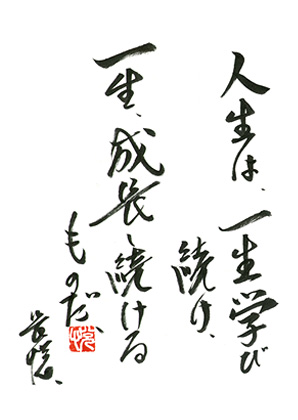 人生は、一生学び
続け、
一生、成長し続ける
ものだ、